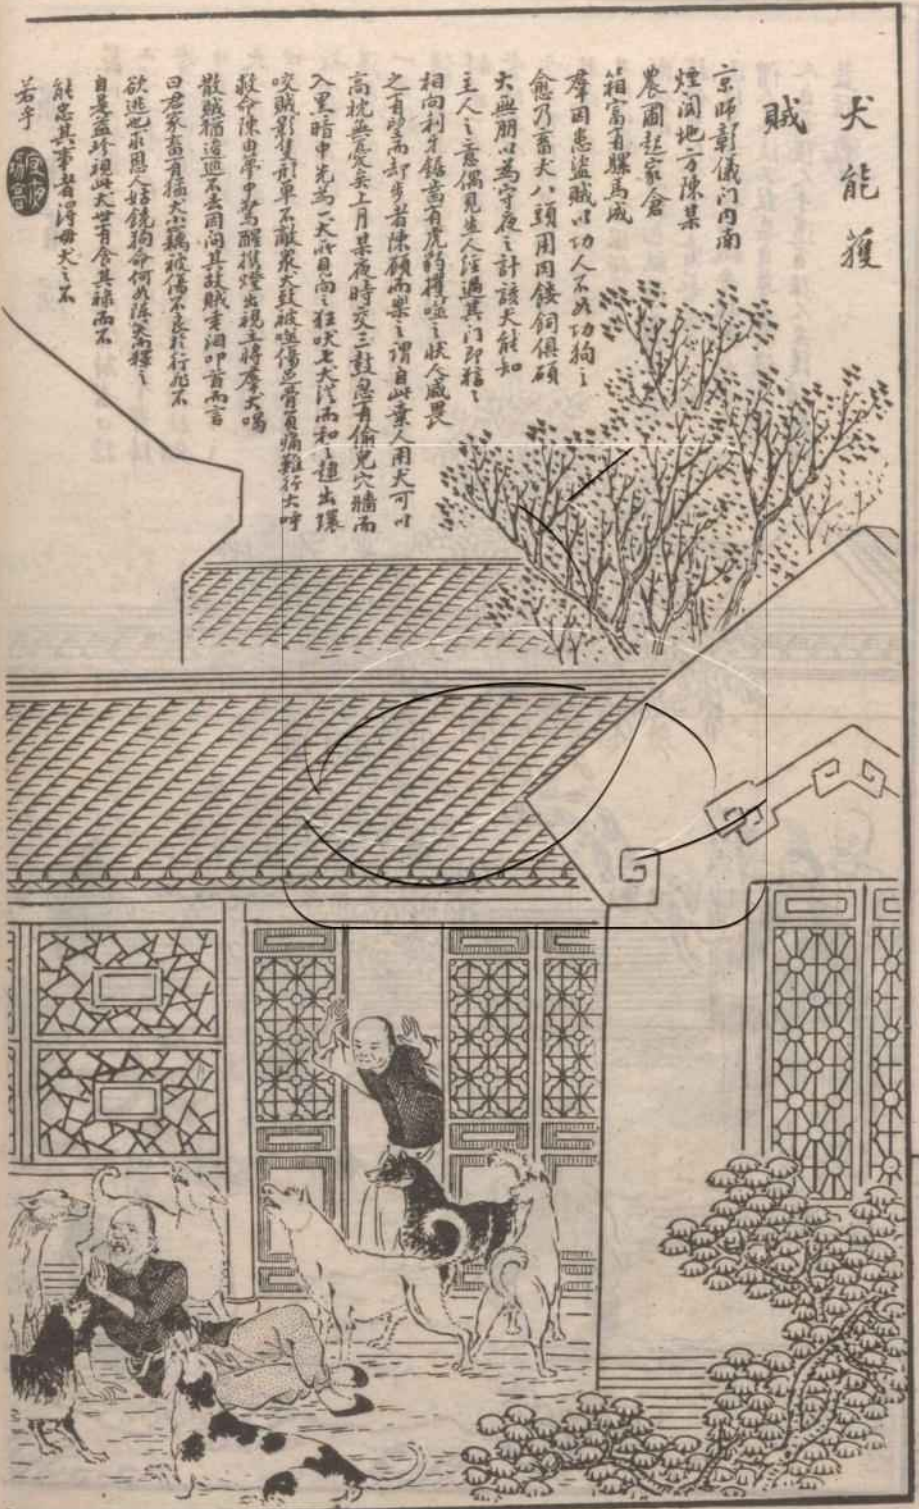 犬能獲
賊
京師彰儀門內南
煙閣地方陳某
農圃起家倉
箱富有騾馬成
羣因患盜賊以功人不如功狗之
愈乃畜犬八頭用肉餧飼俱碩
大無朋以為守夜之計該犬能知
主人之意偶見生人經過其門即狺之
相向利牙鋸齒有虎豹攫噬之狀人咸畏
之有望而却步者陳顧而樂之謂自此棄人用犬可以
高枕無憂矣上月某夜時交三鼓忽有偷兒穴牆而
入黑暗中先為一犬所見向之狂吠七犬從而和之趕出環
咬賊影隻形單不敵衆犬致被噬傷足骨負痛難行大呼
救命陳由夢中驚醒携燈出視立將羣犬喝
散賊猶逡巡不去因問其故賊垂淚叩首而言
曰君家畜有猛犬小竊被傷不良於行非不
欲逃也求恩人姑饒狗命何如陳笑而釋之
自是益珍視此犬世有食其祿而不
能忠其事者得毋犬之不
若乎